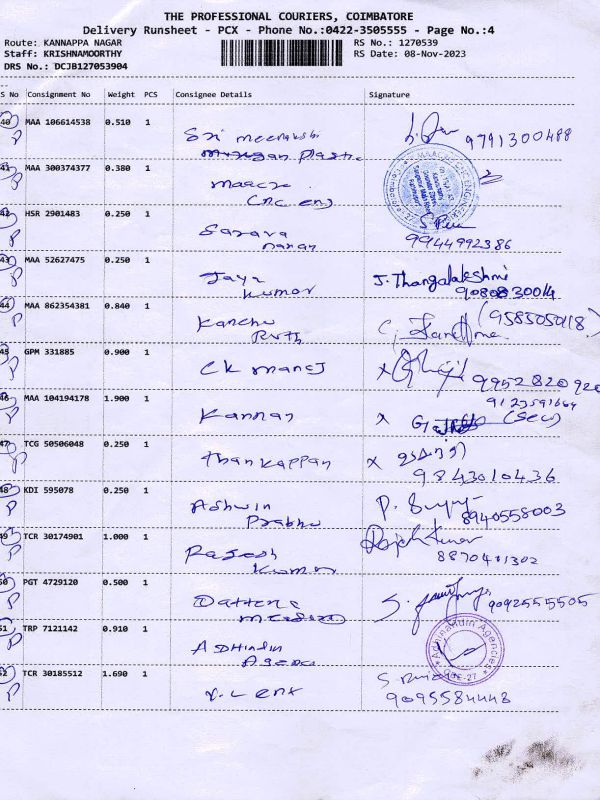 THE PROFESSIONAL COURIERS, COIMBATORE
Delivery Runsheet - PCX - Phone No.:0422-3505555 - Page No.:4
Route: KANNAPPA NAGAR
Staff: KRISHNAMOORTHY
DRS No.: DCJB127053904
RS No.: 1270539
RS Date: 08-Nov-2023
S No Consignment No Weight PCS Consignee Details Signature
40 MAA 106614538 0.510 1 Sri meenakshi 9791300488
murugan Plastic
41 MAA 300374377 0.380 1 maacze
cnc eng
42 HSR 2901483 0.250 1 Sarava
nanan 9944992386
43 MAA 52627475 0.250 1 Jaya J. Thangalakshmi
kumar 9080830014
44 MAA 862354381 0.840 1 Kanchu (9585050118)
45 GPM 331885 0.900 1 CK manoj x 9952820920
46 MAA 104194178 1.900 1 Kannan x 9123591664
(Sec)
47 TCG 50506048 0.250 1 thankappan x
9843010436
48 KDI 595078 0.250 1 Ashwin P.
Prabhu 8940558003
49 TCR 30174901 1.000 1 Rajesh Rajesh Kumar
Kumar 8870401302
50 PGT 4729120 0.500 1 S. 9092555505
51 TRP 7121142 0.910 1 ADHindin
Agenc
Adhinandin Agencies
CBE-27
52 TCR 30185512 1.690 1 S
9095584448